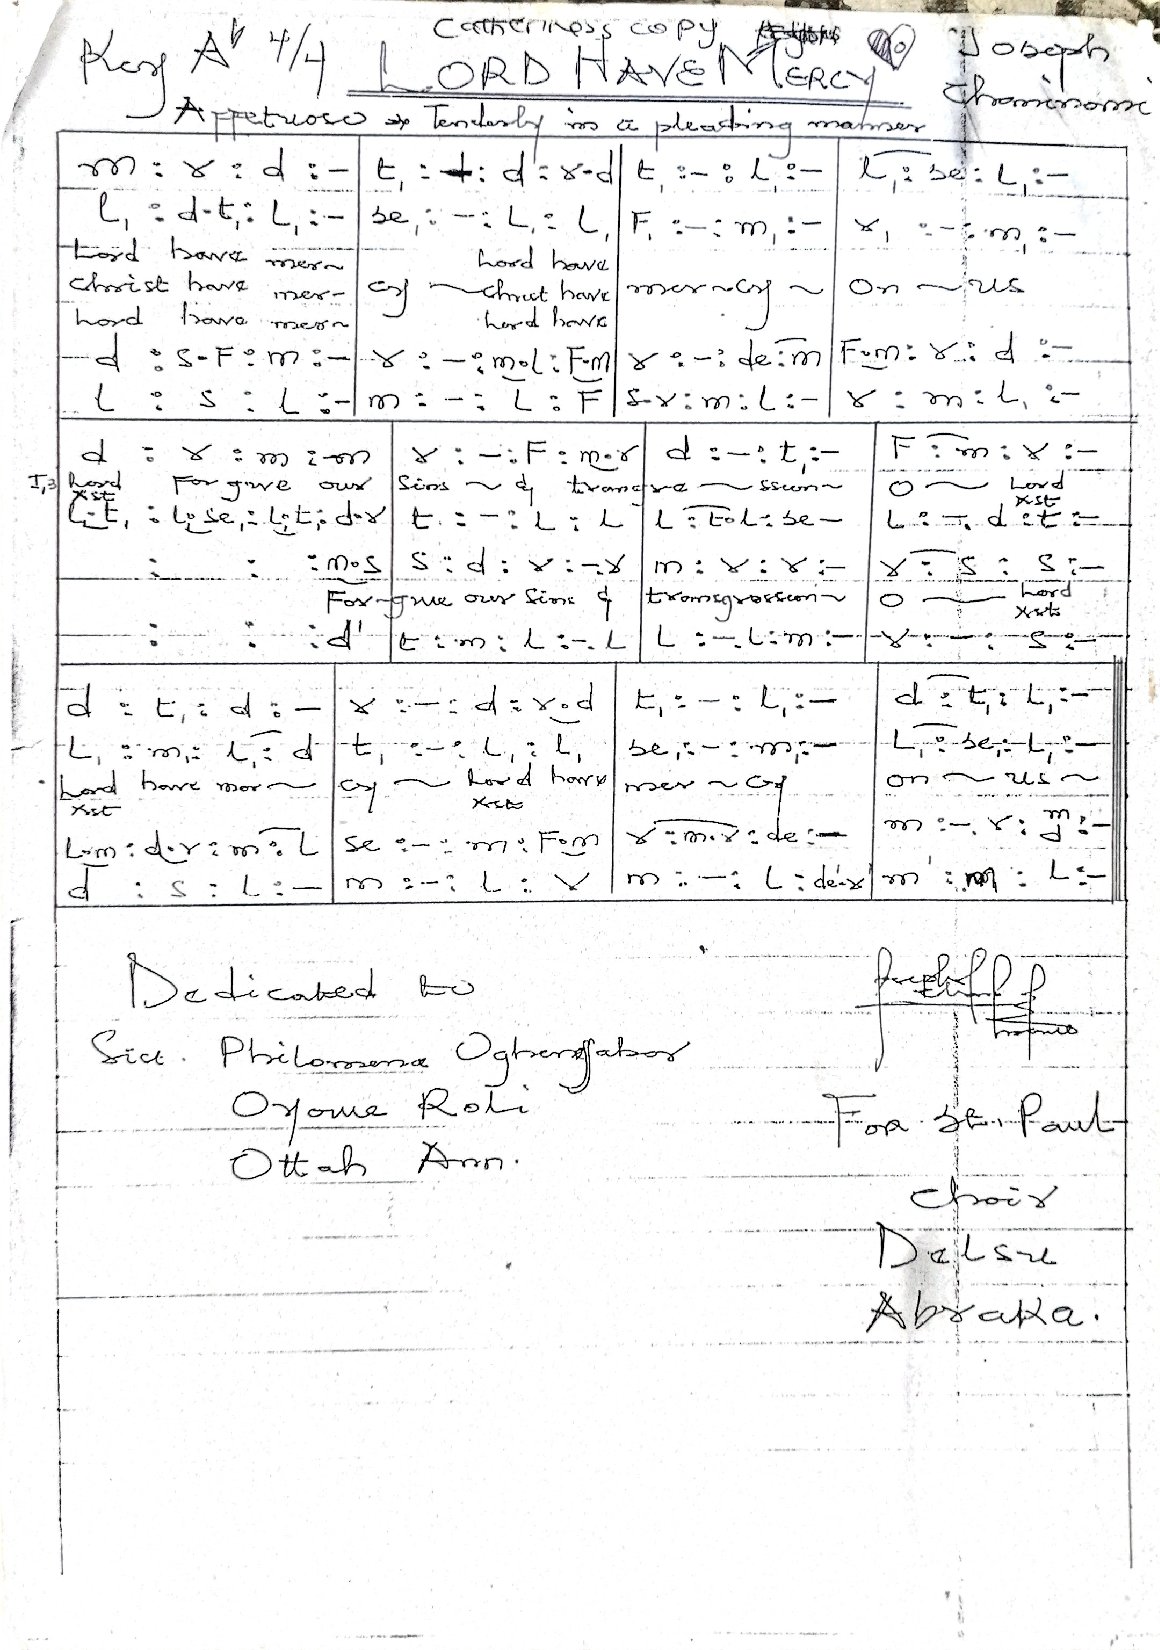 Catheriness copy
Key A♭ 4/4 LORD HAVE MERCY Joseph
Appetuoso Tenderly in a pleading manner
m : r : d : – | t, : – : d : r-d | t, : – : L, : – | L, : se, : L, : –
L, : d-t, : L, : – | se, : – : L, : L, | F, : – : m, : – | r, : – : m, : –
Lord have mer~ Lord have
Christ have mer- cy ~ Christ have mer ~ cy ~ on ~ us
Lord have mer~ Lord have
d : s-F : m : – | r : – : m-L : F-m | r : – : de : m | F-m : r : d : –
L : s : L : – | m : – : L : F | s-r : m : L : – | r : m : L, : –
d : r : m : m | r : – : F : m-r | d : – : t, : – | F : m : r : –
I,3 Lord For give our Sins ~ & transgre ~ ssion~ O ~ Lord
Xst Xst
L-t, : L-se, : L-t, : d-r | t : – : L : L | L : t-L : se – | L : – . d : t : –
: : : m-s | s : d : r : – . r | m : r : r : – | r : s : s : –
For-give our Sins & transgression~ O — Lord
Xst
: : : d' | t : m : L : – . L | L : – . L : m : – | r : – : s : –
d : t, : d : – | r : – : d : r-d | t, : – : L, : – | d : t, : L, : –
L, : m, : L, : d | t, : – : L, : L, | se, : – : m, : – | L, : se, : L, : –
Lord have mer ~ cy ~ Lord have mer ~ cy on ~ us ~
Xst Xst
L-m : d-r : m : L | se : – : m : F-m | r : m-r : de : – | m : – . r : m : –
d
d : s : L : – | m : – : L : r | m : – : L : de'-r' | m' : m : L : –
Dedicated to
Sis. Philomena
Oyowe Roli
Ottah Ann.
For St. Paul
Choir
Delsu
Abraka.